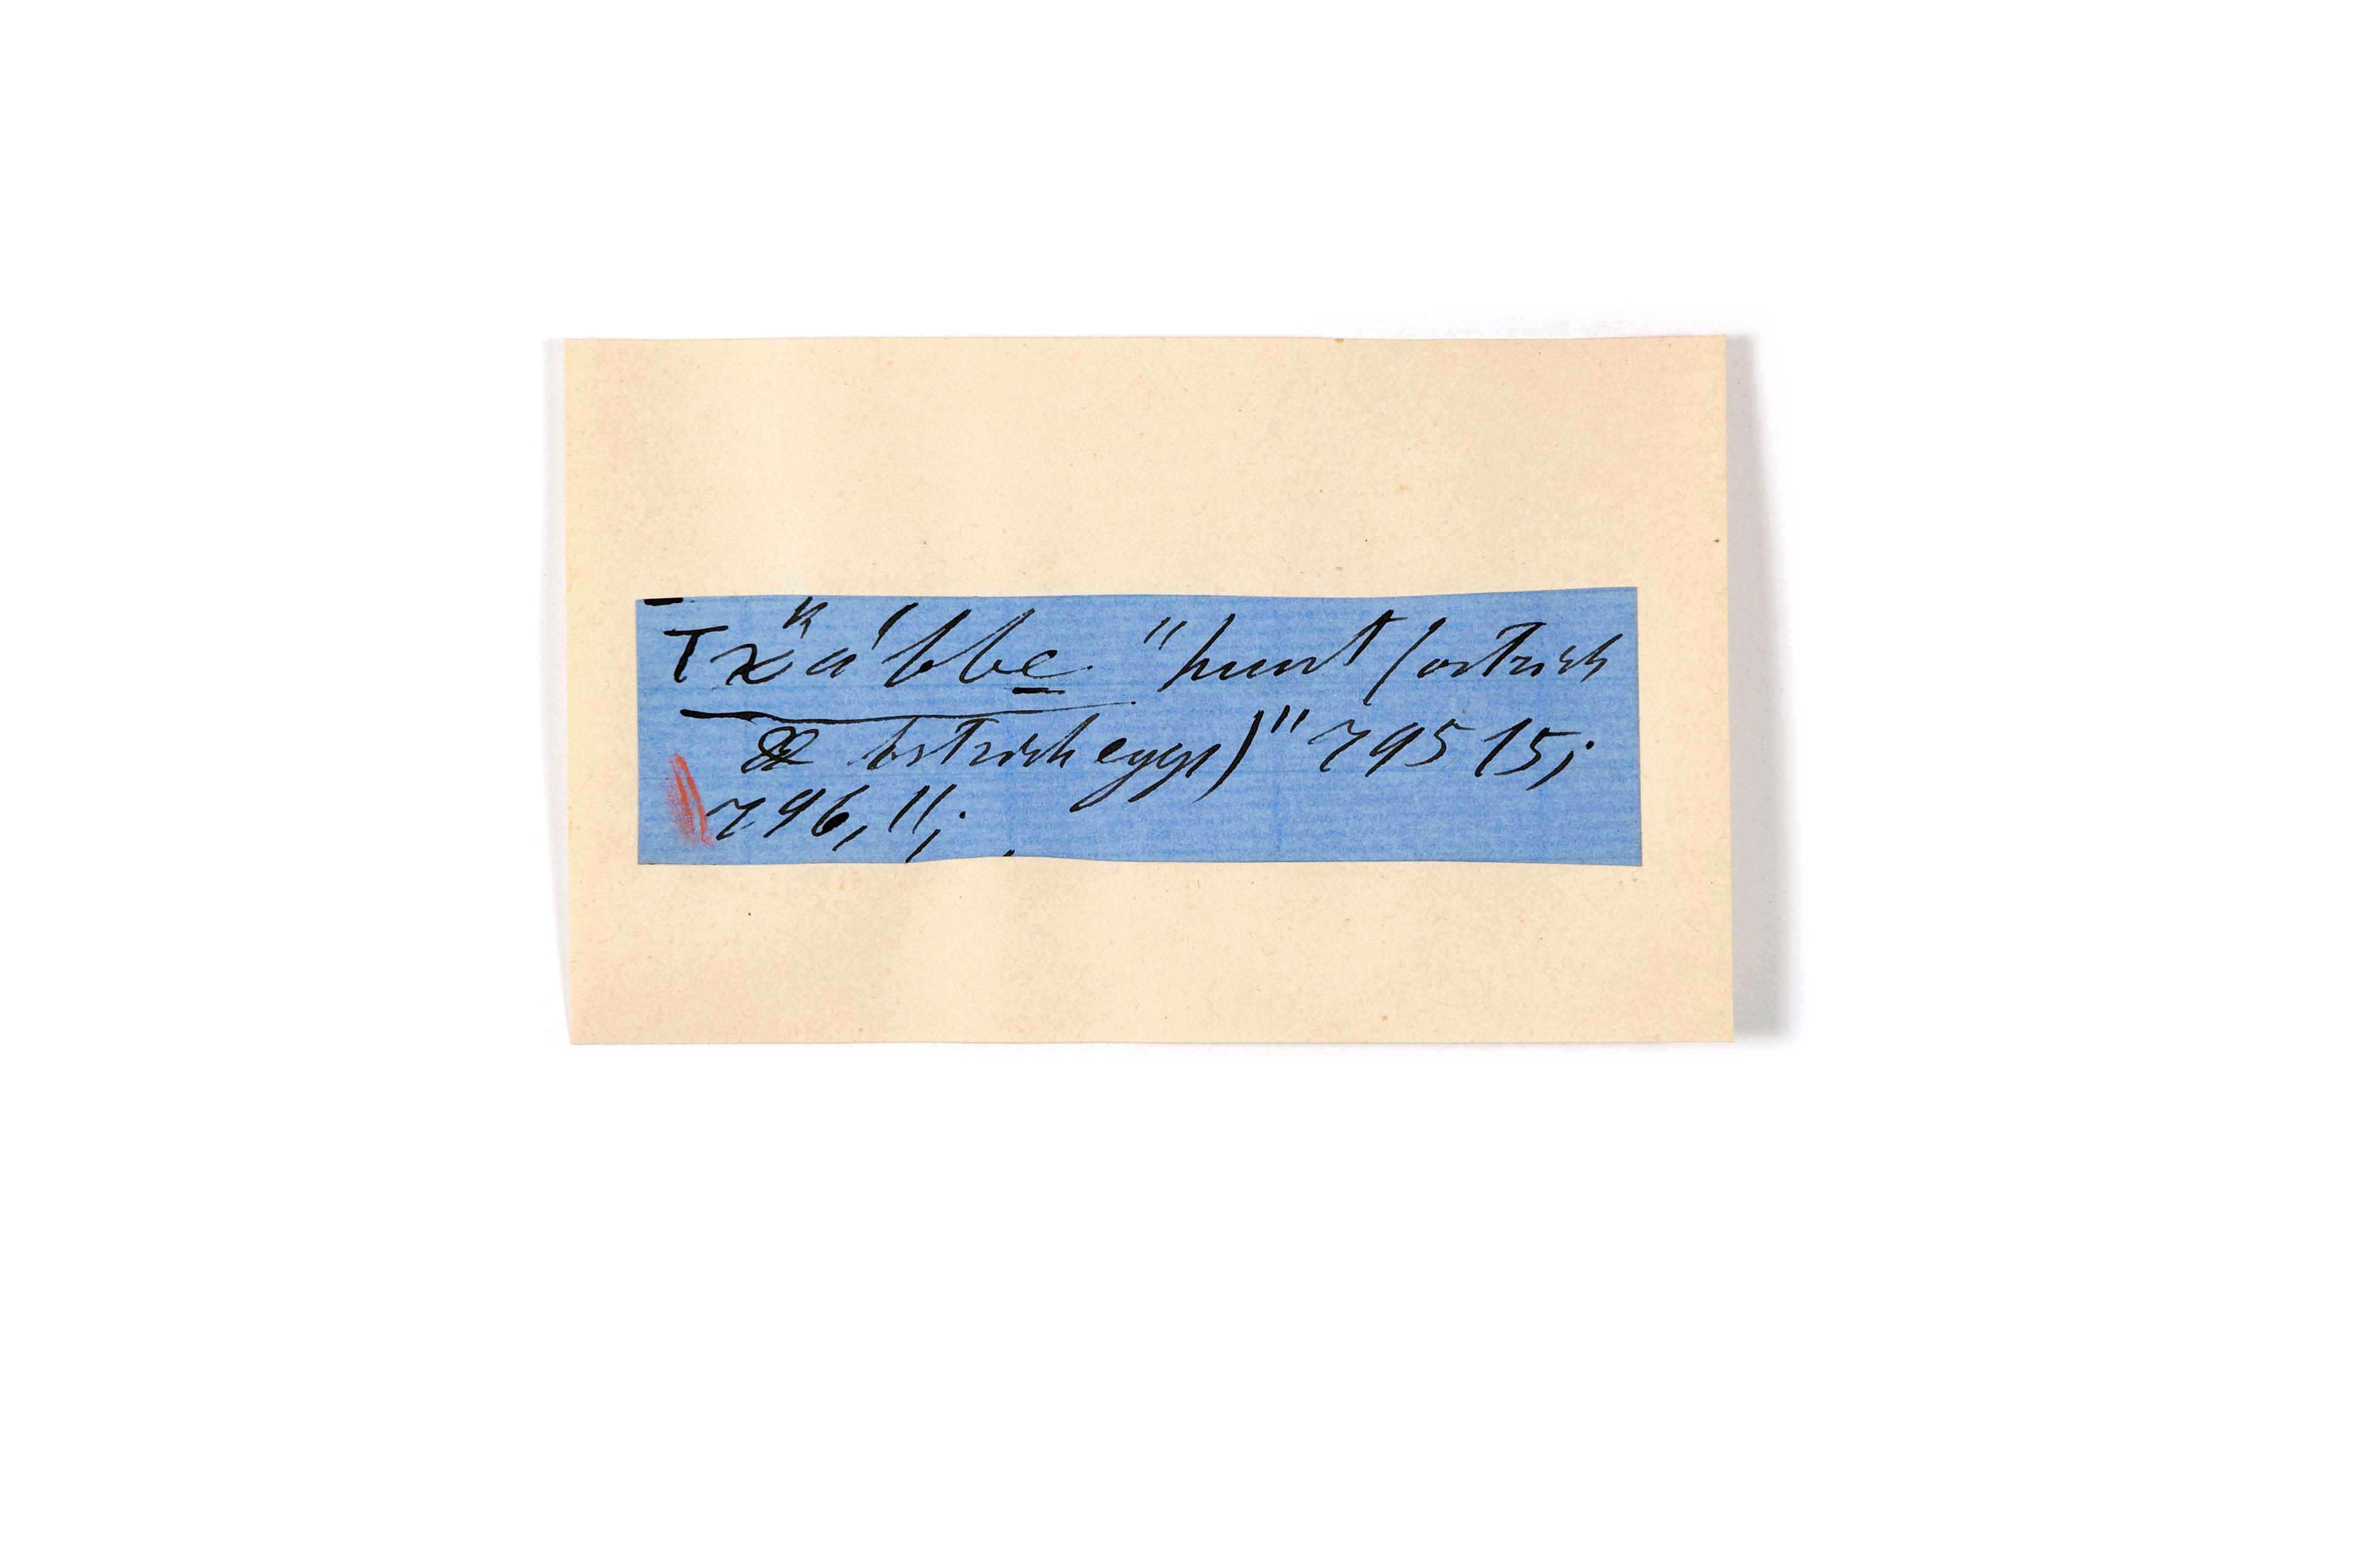 Txᵏa'bbe̱ "hunt (ostrich
& ostrich eggs)" 795 15;
796, 11;